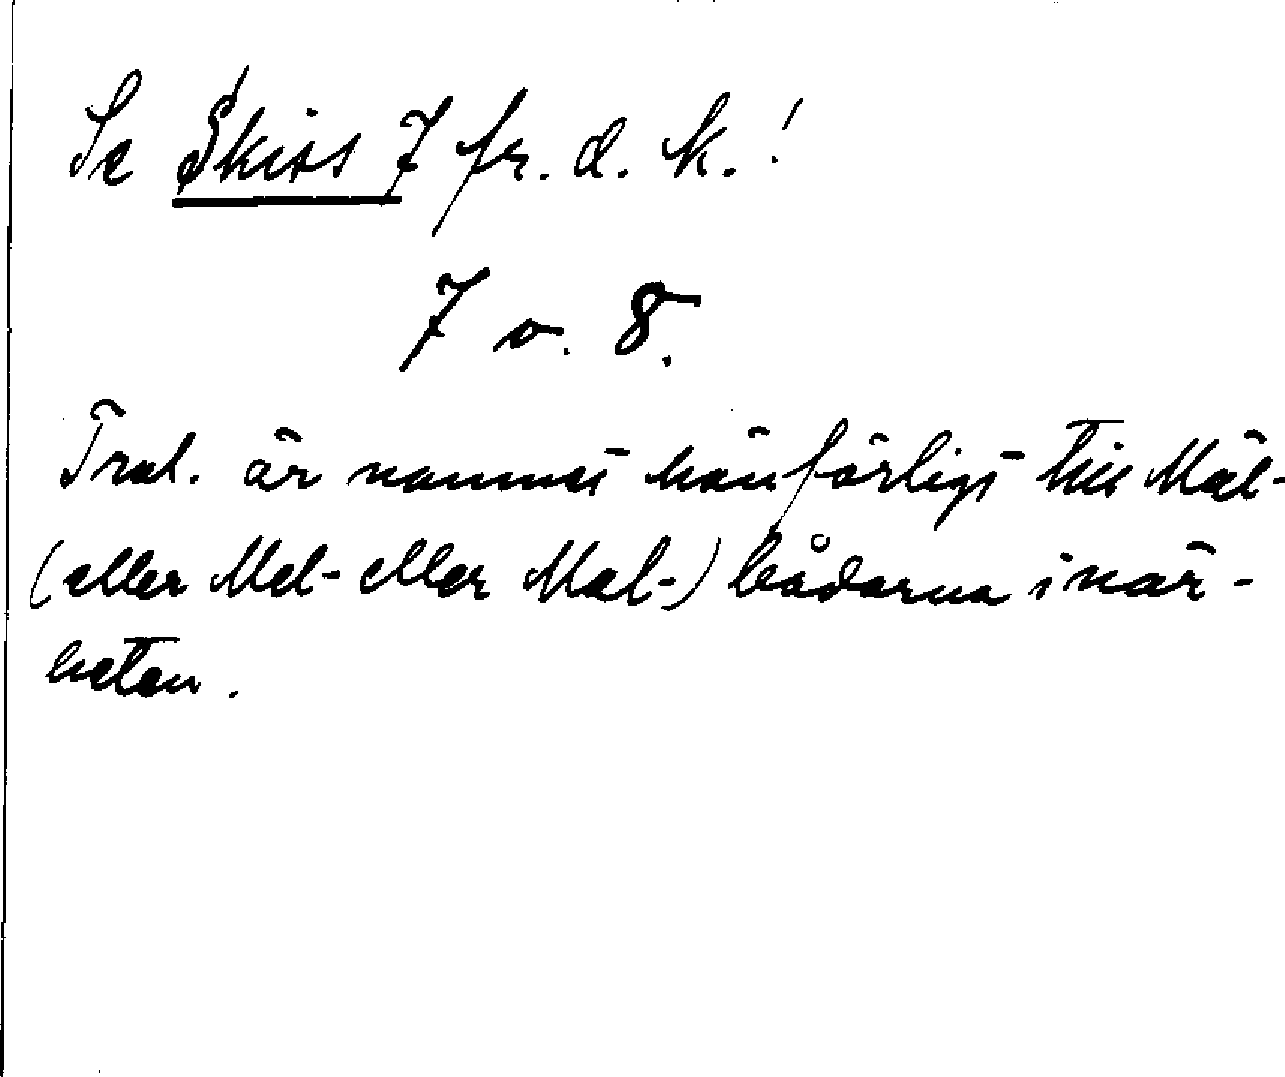 Se Skiss 7 fr. d. k.!
7 o. 8.
Trol. är namnet hänförligt till Mäl-
(eller Mel- eller Mal-) bådarna i när-
heten.